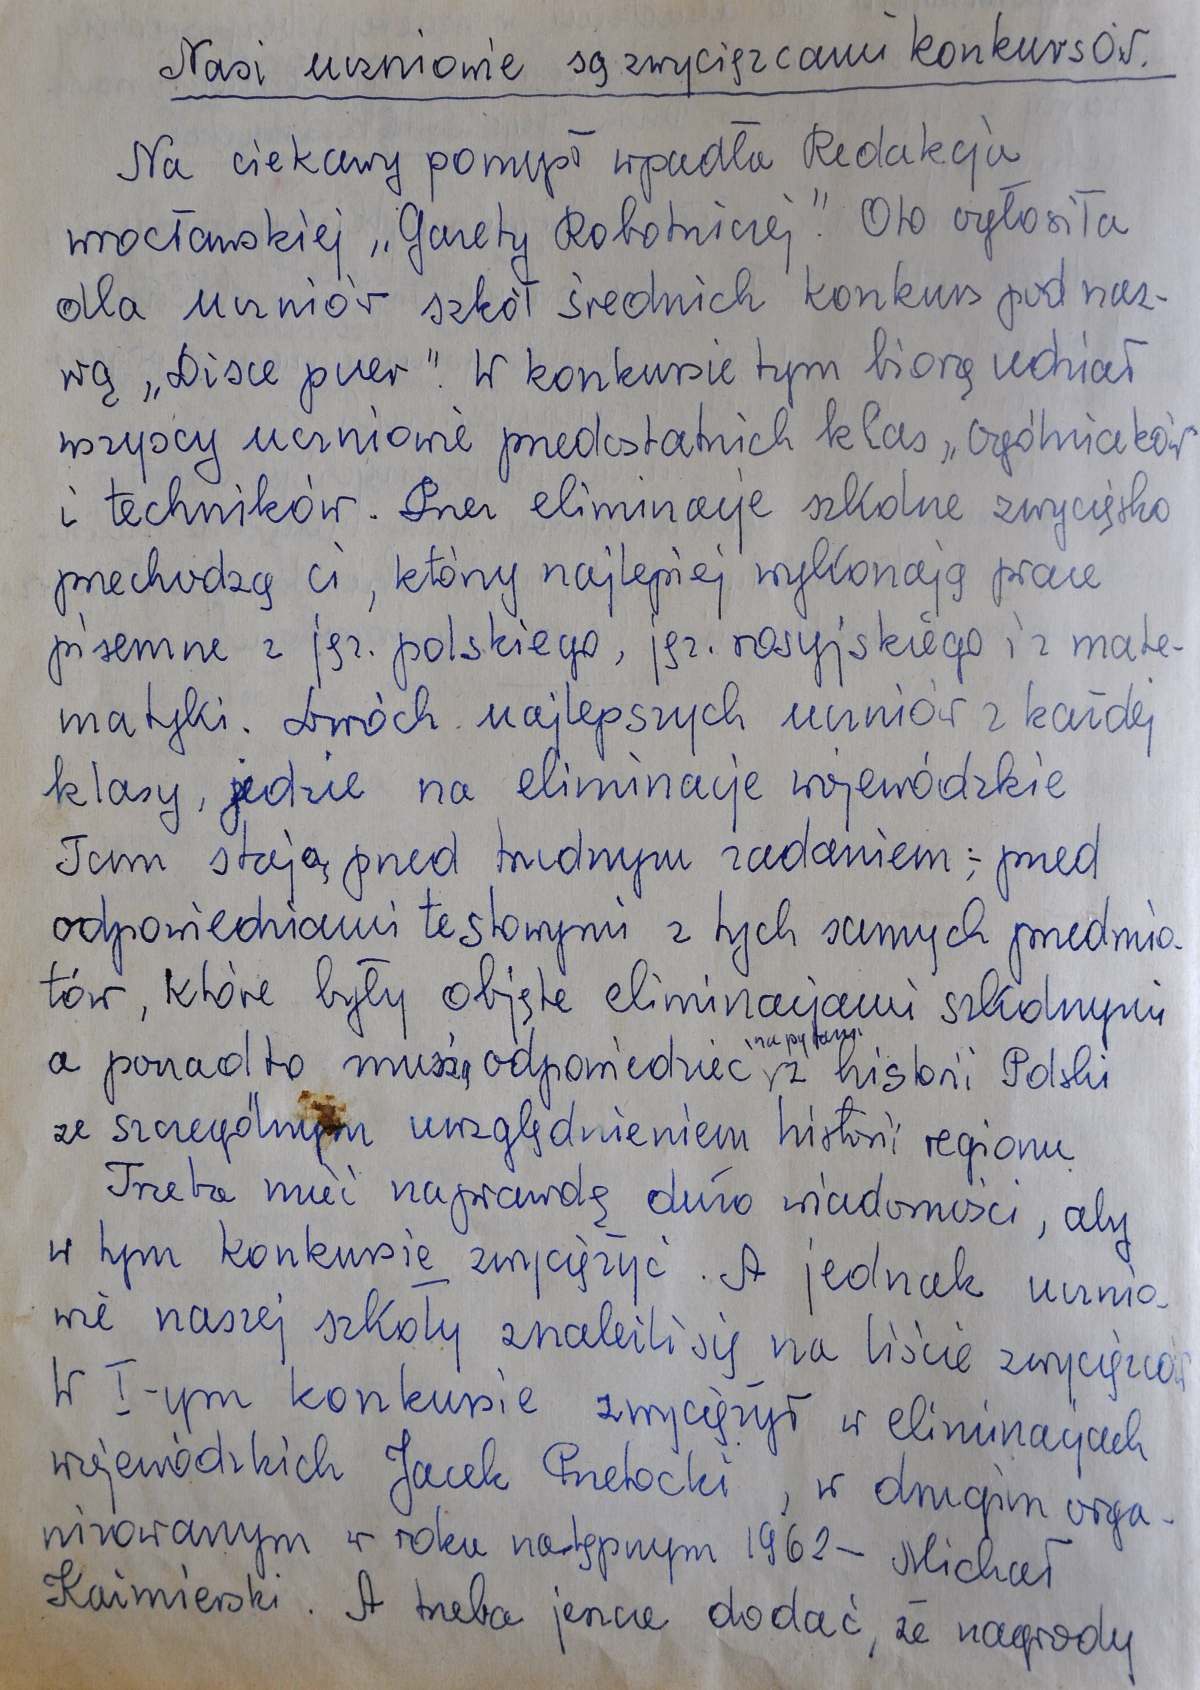 Nasi uczniowie są zwycięzcami konkursów.
Na ciekawy pomysł wpadła Redakcja
wrocławskiej „Gazety Robotniczej". Oto ogłosiła
dla uczniów szkół średnich konkurs pod naz-
wą „Disce puer". W konkursie tym biorą udział
wszyscy uczniowie przedostatnich klas „ogólniaków
i techników. Przez eliminacje szkolne zwycięsko
przechodzą ci, którzy najlepiej wykonają prace
pisemne z jęz. polskiego, jęz. rosyjskiego i z mate-
matyki. Dwóch najlepszych uczniów z każdej
klasy, jedzie na eliminacje wojewódzkie
Tam stają przed trudnym zadaniem; przed
odpowiedziami testowymi z tych samych przedmio-
tów, które były objęte eliminacjami szkolnymi
a ponadto muszą odpowiedzieć na pytania z historii Polski
ze szczególnym uwzględnieniem historii regionu.
Trzeba mieć naprawdę dużo wiadomości, aby
w tym konkursie zwyciężyć. A jednak ucznio-
wie naszej szkoły znaleźli się na liście zwycięzców
W I-ym konkursie zwyciężył w eliminacjach
wojewódzkich Jacek Przetocki, w drugim orga-
nizowanym w roku następnym 1962 – Michał
Kaźmierski. A trzeba jeszcze dodać, że nagrody